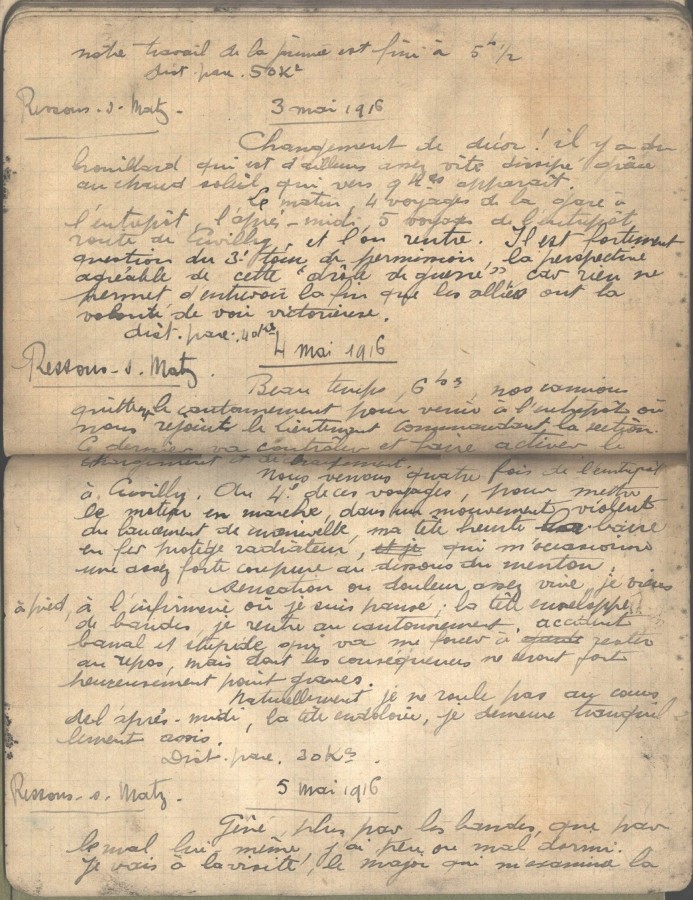 notre travail de la journée est fini à 5h 1/2
dist. parc. 50 Ks
Ressons-s-Matz.
3 mai 1916
Changement de décor ! il y a du
brouillard qui est d'ailleurs assez vite dissipé grâce
au chaud soleil qui vers 9 hes apparait.
Le matin, 4 voyages de la gare à
l'entrepôt, l'après-midi 5 voyages de l'entrepôt
route de Cuvilly, et l'on rentre. Il est fortement
question du 3e tour de permission, la perspective
agréable de cette "drôle de guerre", car rien ne
permet d'entrevoir la fin que les alliés ont la
volonté de voir victorieuse.
dist. parc. 40 Ks
4 mai 1916
Ressons-s-Matz.
Beau temps, 6 hes, nos camions
quittent le cantonnement pour venir à l'entrepôt où
nous rejoint le lieutenant commandant la section.
Ce dernier va contrôler et faire activer le
chargement et déchargement.
Nous venons quatre fois de l'entrepôt
à Cuvilly. Au 4e de ces voyages, pour mettre
le moteur en marche, dans un mouvement violent
du lancement de manivelle, ma tête heurte la barre
en fer protège radiateur, et je qui m'occasionne
une assez forte coupure au dessous du menton.
Sensation ou douleur assez vive, je viens
à pied, à l'infirmerie où je suis pansé ; la tête enveloppée
de bandes je rentre au cantonnement. accident
banal et stupide, qui va me forcer à rester
au repos, mais dont les conséquences ne seront fort
heureusement point graves.
Naturellement je ne roule pas au cours
de l'après-midi, la tête endolorie, je demeure tranquil
lement assis.
Dist. parc. 30 Ks.
Ressons-s-Matz.
5 mai 1916
Gêné, plus par les bandes, que par
le mal lui même, j'ai peu ou mal dormi.
Je vais à la visite, le major qui m'examine la